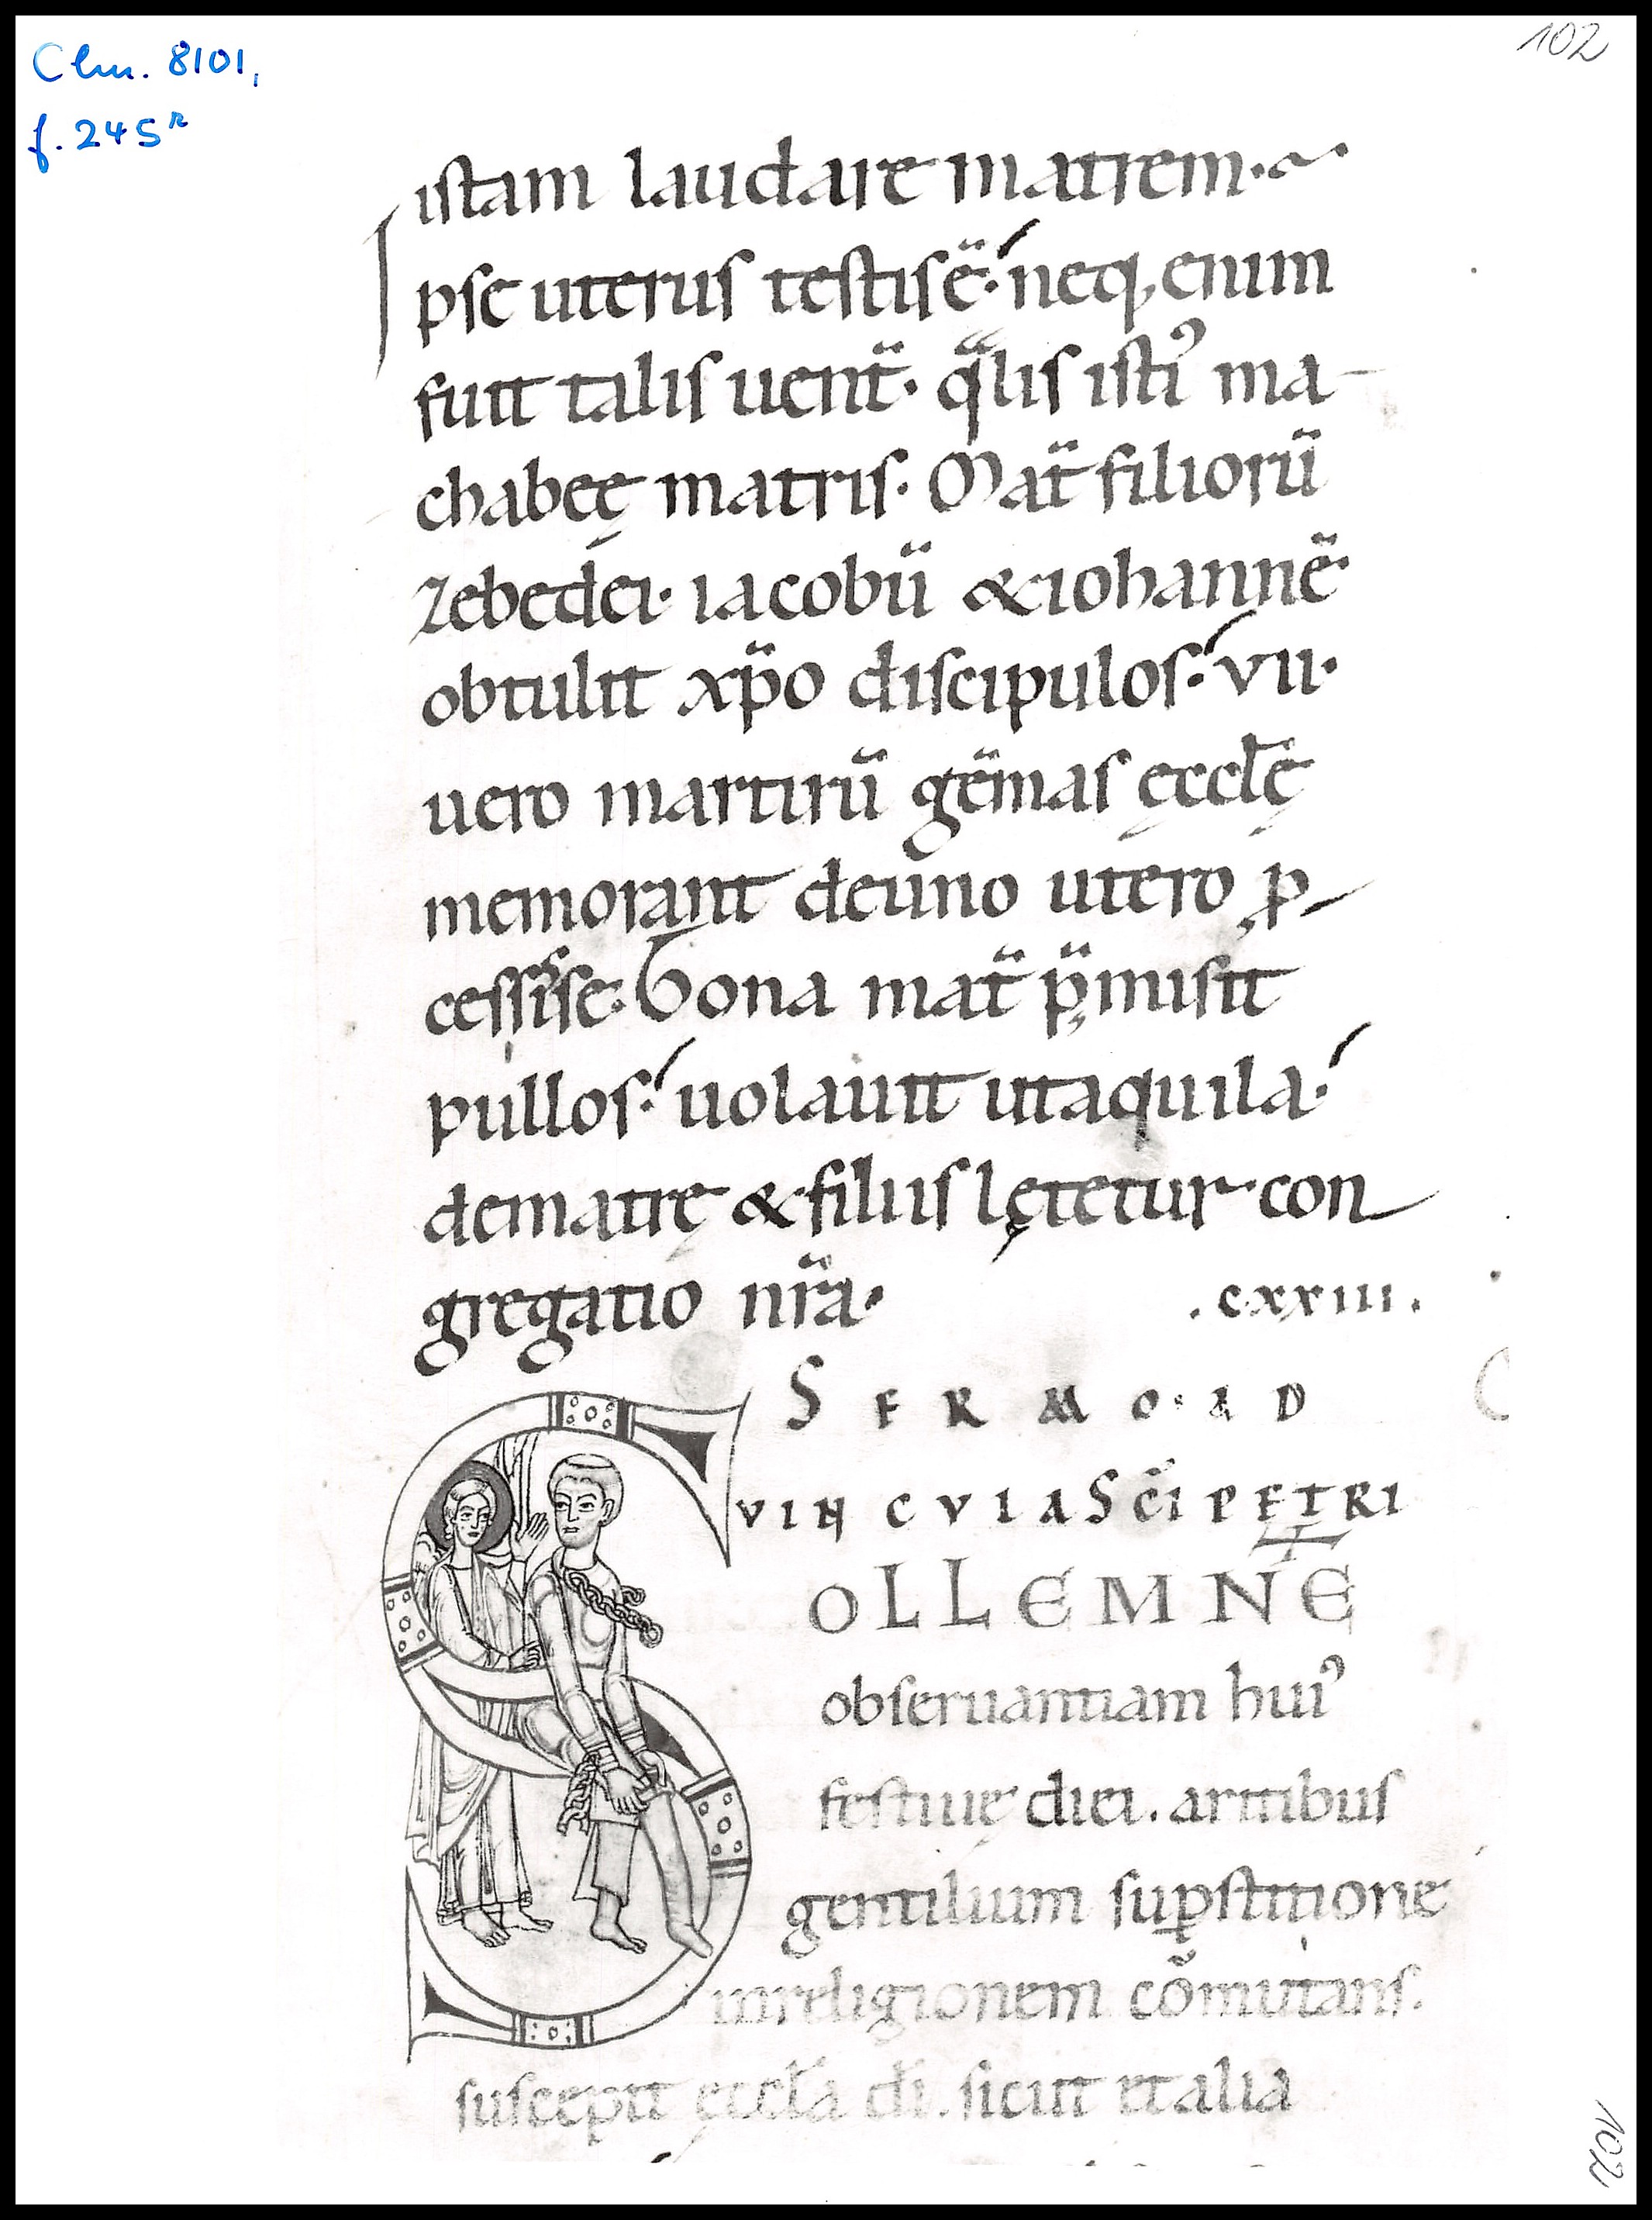 Clm. 8101,
f. 245r
102
istam laudare matrem.
Ipse uterus testis ē. neq, enim
fuit talis uent̄. q̄lis isti' ma-
chabeę matris. Mat̄ filiorū
Zebedei. iacobū & iohannē.
obtulit xp̄o discipulos. vii.
uero martirū gēmas ęccłę
memorant de uno utero ꝓ-
cessisse. Bona mat̄ p̄misit
pullos. uolauit ut aquila.
de matrę & filiis lętetur con
gregatio nr̄a.
.cxxiii.
SERMO. AD
VINCVLA SC̄I PETRI
OLLEMNE
obseruantiam hui'
festiuę diei. a ritibus
gentilium suꝑstitione
in religionem cōmutans.
suscepit ęccła dī. sicut et alia
102